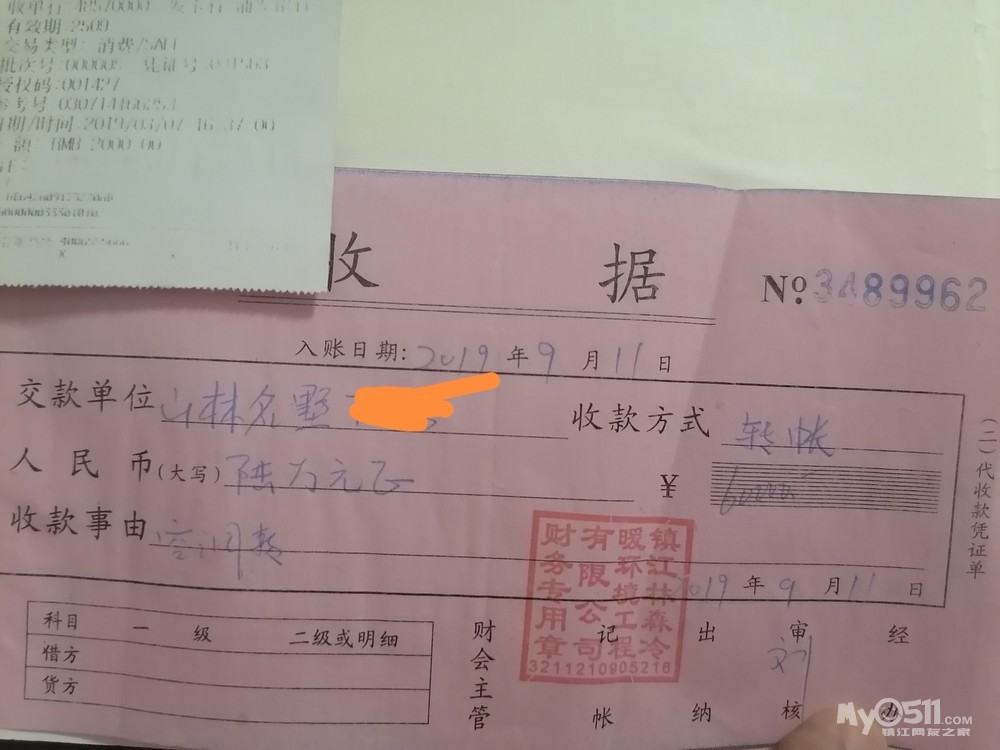 有效期:2509
交易类型: 消费/SALE
授权码:001427
日期/时间:2019/03/07 16:37:00
RMB 2000.00
收 据
№ 3489962
入账日期: 2019 年 9 月 11 日
交款单位 山林名墅
收款方式 转帐
人民币(大写) 陆万元正
¥ 60000
收款事由 空调款
2019 年 9 月 11 日
(二)代收款凭证单
镇江林森冷
暖环境工程
有限公司
财务专用章
3211210905216
科目 一级 二级或明细
借方
货方
财会主管 记帐 出纳 审核 刘 经办
My0511.com
镇江网友之家